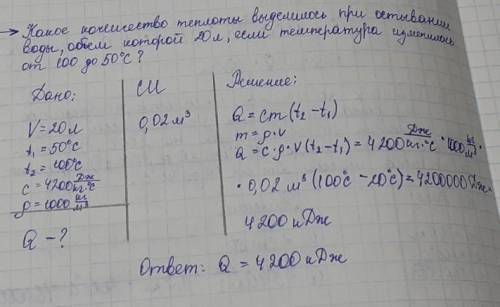 → Какое количество теплоты выделилось при остывании
воды, объем которой 20л, если температура изменилась
от 100 до 50°С?
Дано:
V = 20л
t₁ = 50°С
t₂ = 100°С
c = 4200 Дж/кг·°С
ρ = 1000 кг/м³
Q - ?
СИ
0,02 м³
Решение:
Q = cm(t₂ - t₁)
m = ρ · v
Q = c · ρ · v(t₂ - t₁) = 4200 Дж/кг·°С · 1000 кг/м³ ·
· 0,02 м³ (100°С - 20°С) = 4200000 Дж =
4200 кДж
Ответ: Q = 4200 кДж